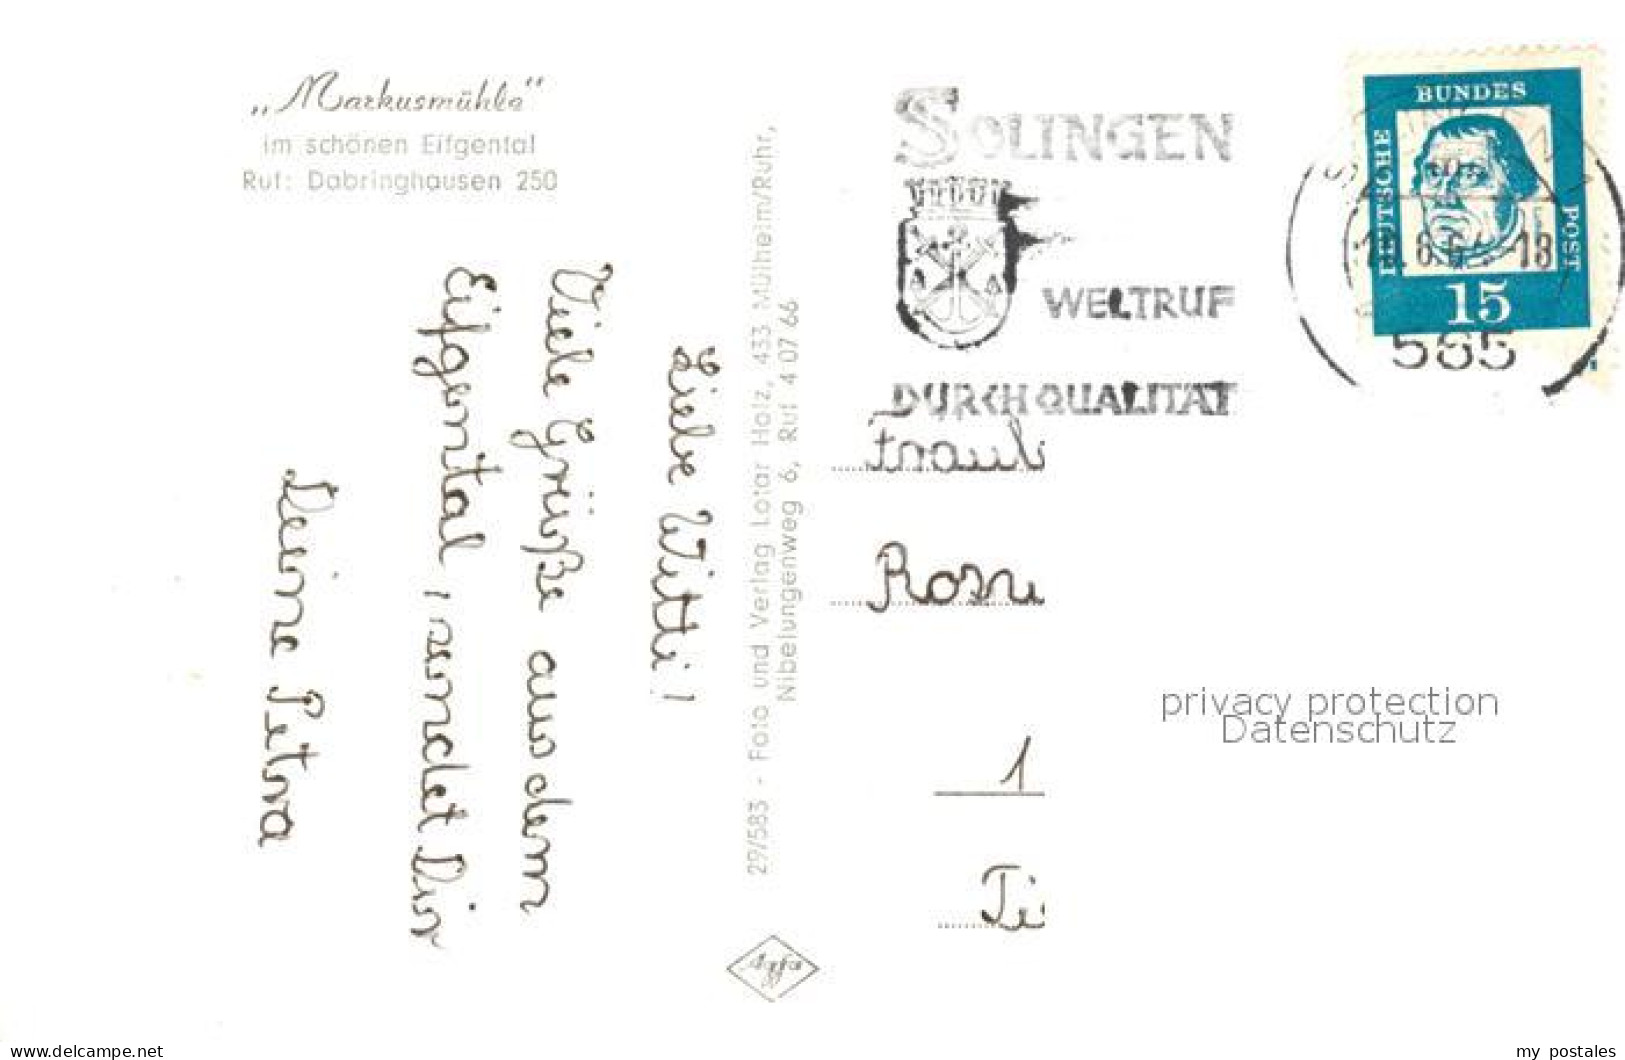 „Markusmühle“
im schönen Eifgental
Ruf: Dabringhausen 250
Liebe Witti!
Viele Grüße aus dem
Eifgental, sendet Dir
Deine Petra
29/583 - Foto und Verlag Lotar Holz, 433 Mülheim/Ruhr,
Nibelungenweg 6, Ruf 4 07 66
Agfa
SOLINGEN
WELTRUF
DURCH QUALITÄT
DEUTSCHE
BUNDES
POST
15
565
1
privacy protection
Datenschutz
www.delcampe.net
my_postales